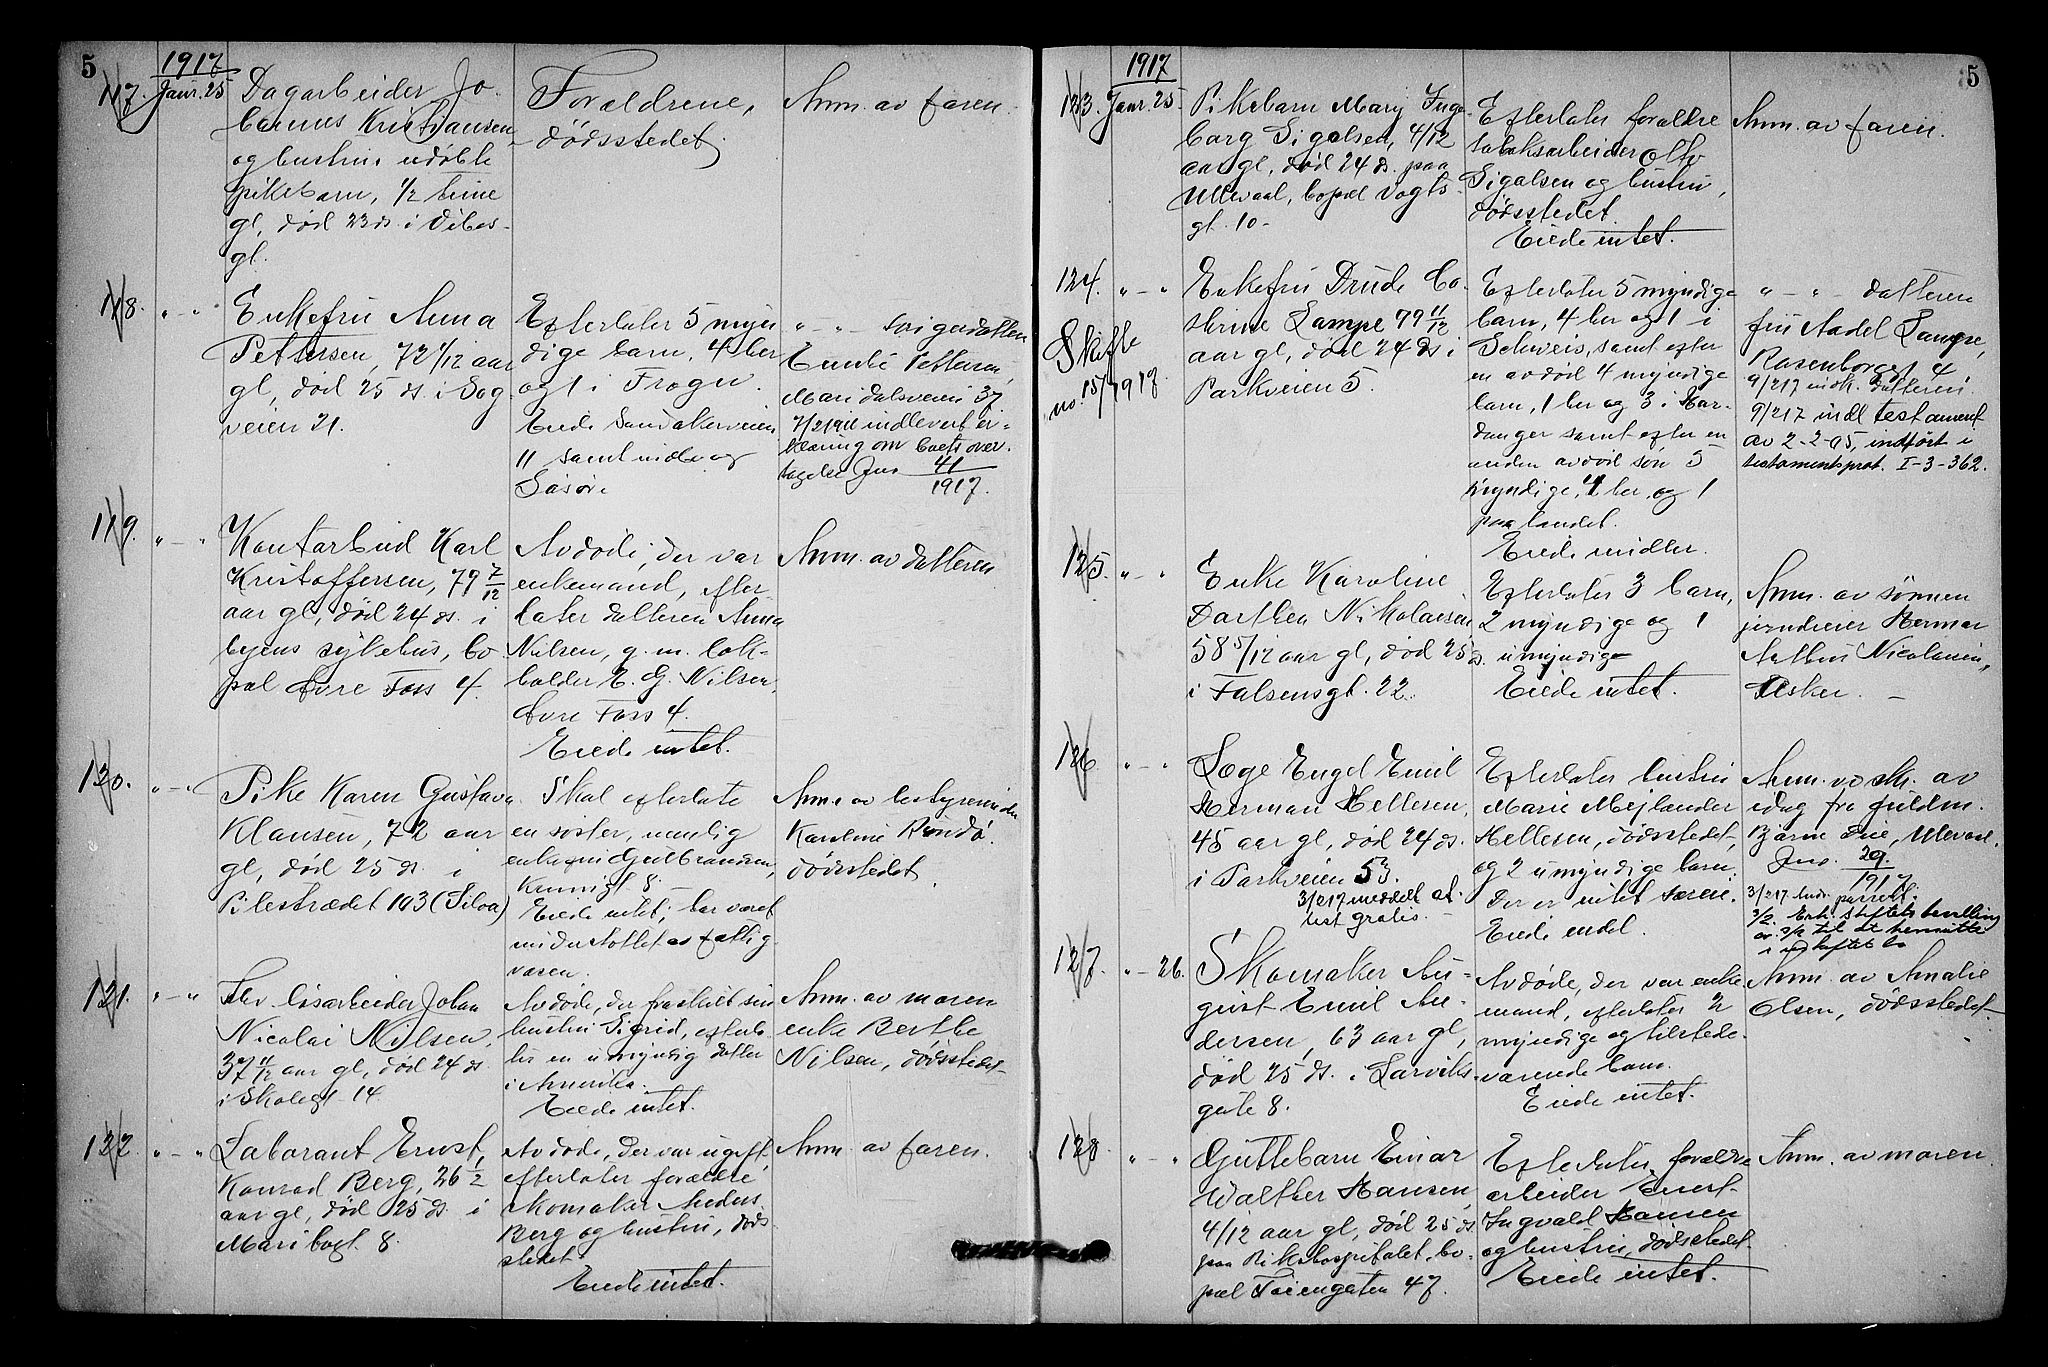 5
1917
117. Janr. 25
Dagarbeider Jo-
hannes Kristiansen
og hustrus udøbte
pikebarn, 1/2 time
gl., død 23 ds. i Vibes-
gt.
Forældrene,
dødsstedet.
Anm. av faren.
118. " - "
Enkefru Anna
Pettersen, 72 1/12 aar
gl., død 25 ds. i Sog-
veien 21.
Efterlater 5 myn
dige barn, 4 her
og 1 i Frogn.
Eiede Sandakerveien
11 samt indbo og
Løsøre
" - " svigerdatteren
Pettersen,
Maridalsveien 37
indlevert er-
klæring om boets over-
tagelse Jnr. 41
1917.
119. " - "
Kontorbud Karl
Kristoffersen, 79 7/12
aar gl., død 24 ds. i
byens sykehus, bo-
pæl Øvre Foss 4.
Avdøde, der var
enkemand, efter-
later datteren Anna
Nilsen, g. m. lok-
holder E. G. Nilsen,
Øvre Foss 4.
Eiede intet.
Anm. av datteren
120. " - "
Pike Karen Gustava
Klausen, 72 aar
gl., død 25 ds. i
Pilestrædet 103 (Silva)
Skal efterlate
en søster, nemlig
enkefru Gulbrandsen,
8.
Eiede intet; har været
understøttet av fattig-
væsen.
Anm. av bestyrerinden
Karoline
dødsstedet.
121. " - "
arbeider Johan
Nicolai Nilsen,
37 11/12 aar gl., død 24 ds.
i Skolegt 14
Avdøde, der fraskilt sin
hustru Sigrid, efterla-
ter en umyndig datter
i Amerika.
Eiede intet.
Anm. av moren
enke Berthe
Nilsen, dødsstedet
122. " - "
Laborant Ernst
Konrad Berg, 26 1/2
aar gl., død 25 ds. i
Maribogt. 8.
Avdøde, der var ugift,
efterlater forældre
skomaker Anders
Berg og hustru, døds-
stedet.
Eiede intet.
Anm. av faren.
5
1917
123. Janr. 25.
Pikebarn Mary Inge
borg Sigalsen, 4/12
aar gl., død 24 ds. paa
Ullevaal, bopæl Vogts-
gt. 10-
Efterlater forældre
tobaksarbeider Otto
Sigalsen og hustru,
dødsstedet.
Eiede intet.
Anm. av faren.
124. " - "
Skifte
no. 15/1918
Enkefru Drude Ca-
thrine Lampe 79 11/12
aar gl., død 24 ds i
Parkveien 5.
Efterlater 5 myndige
barn, 4 her og 1 i
Schweis, samt efter
en avdød 4 myndige
barn, 1 her og 3 i Har-
danger samt efter en
anden avdød søn 5
myndige, 4 her, og 1
paa landet.
Eiede midler.
" - " datteren
frk Aadel Lampe,
Rosenborggt 4.
9/217 datteren
9/217 indl testament
av 2-2-05, indført i
testamentsprot. I-3-362.
125. " - "
Enke Karoline
Dorthea Nikolaisen
58 5/12 aar gl., død 25 ds.
i Falsensgt. 22.
Efterlater 3 barn,
2 myndige og 1
umyndige
Eiede intet.
Anm. av sønnen
jerndreier Herman
Arthur Nicolaisen,
Asker. -
126. " - "
Læge Engel Emil
Herman Hellesen,
45 aar gl., død 24 ds.
i Parkveien 53.
3/217 meddelt at-
test gratis. -
Efterlater hustru
Marie Mejlænder
Hellesen, dødsstedet,
og 2 umyndige barn.
Der er intet særeie.
Eiede endel.
Anm. ved skr. av
idag fra fuldm.
Bjarne Ullevaal.
Jnr. 29.
1917.
127. " - 26.
Skomaker Au-
gust Emil An-
dersen, 63 aar gl,
død 25 ds. i Larviks-
gate 8.
Avdøde, der var enke-
mand, efterlater 2
myndige og tilstede-
værende barn.
Eiede intet.
Anm. av Amalie
Olsen, dødsstedet.
128. " - "
Guttebarn Einar
Walther Hansen,
4/12 aar gl., død 25 ds
paa Rikshospitalet, bo-
pæl Tøiengaten 47.
Efterlater forældre
arbeider Ernst
Ingvald Hansen
og hustru, dødsstedet.
Eiede intet.
Anm. av moren.